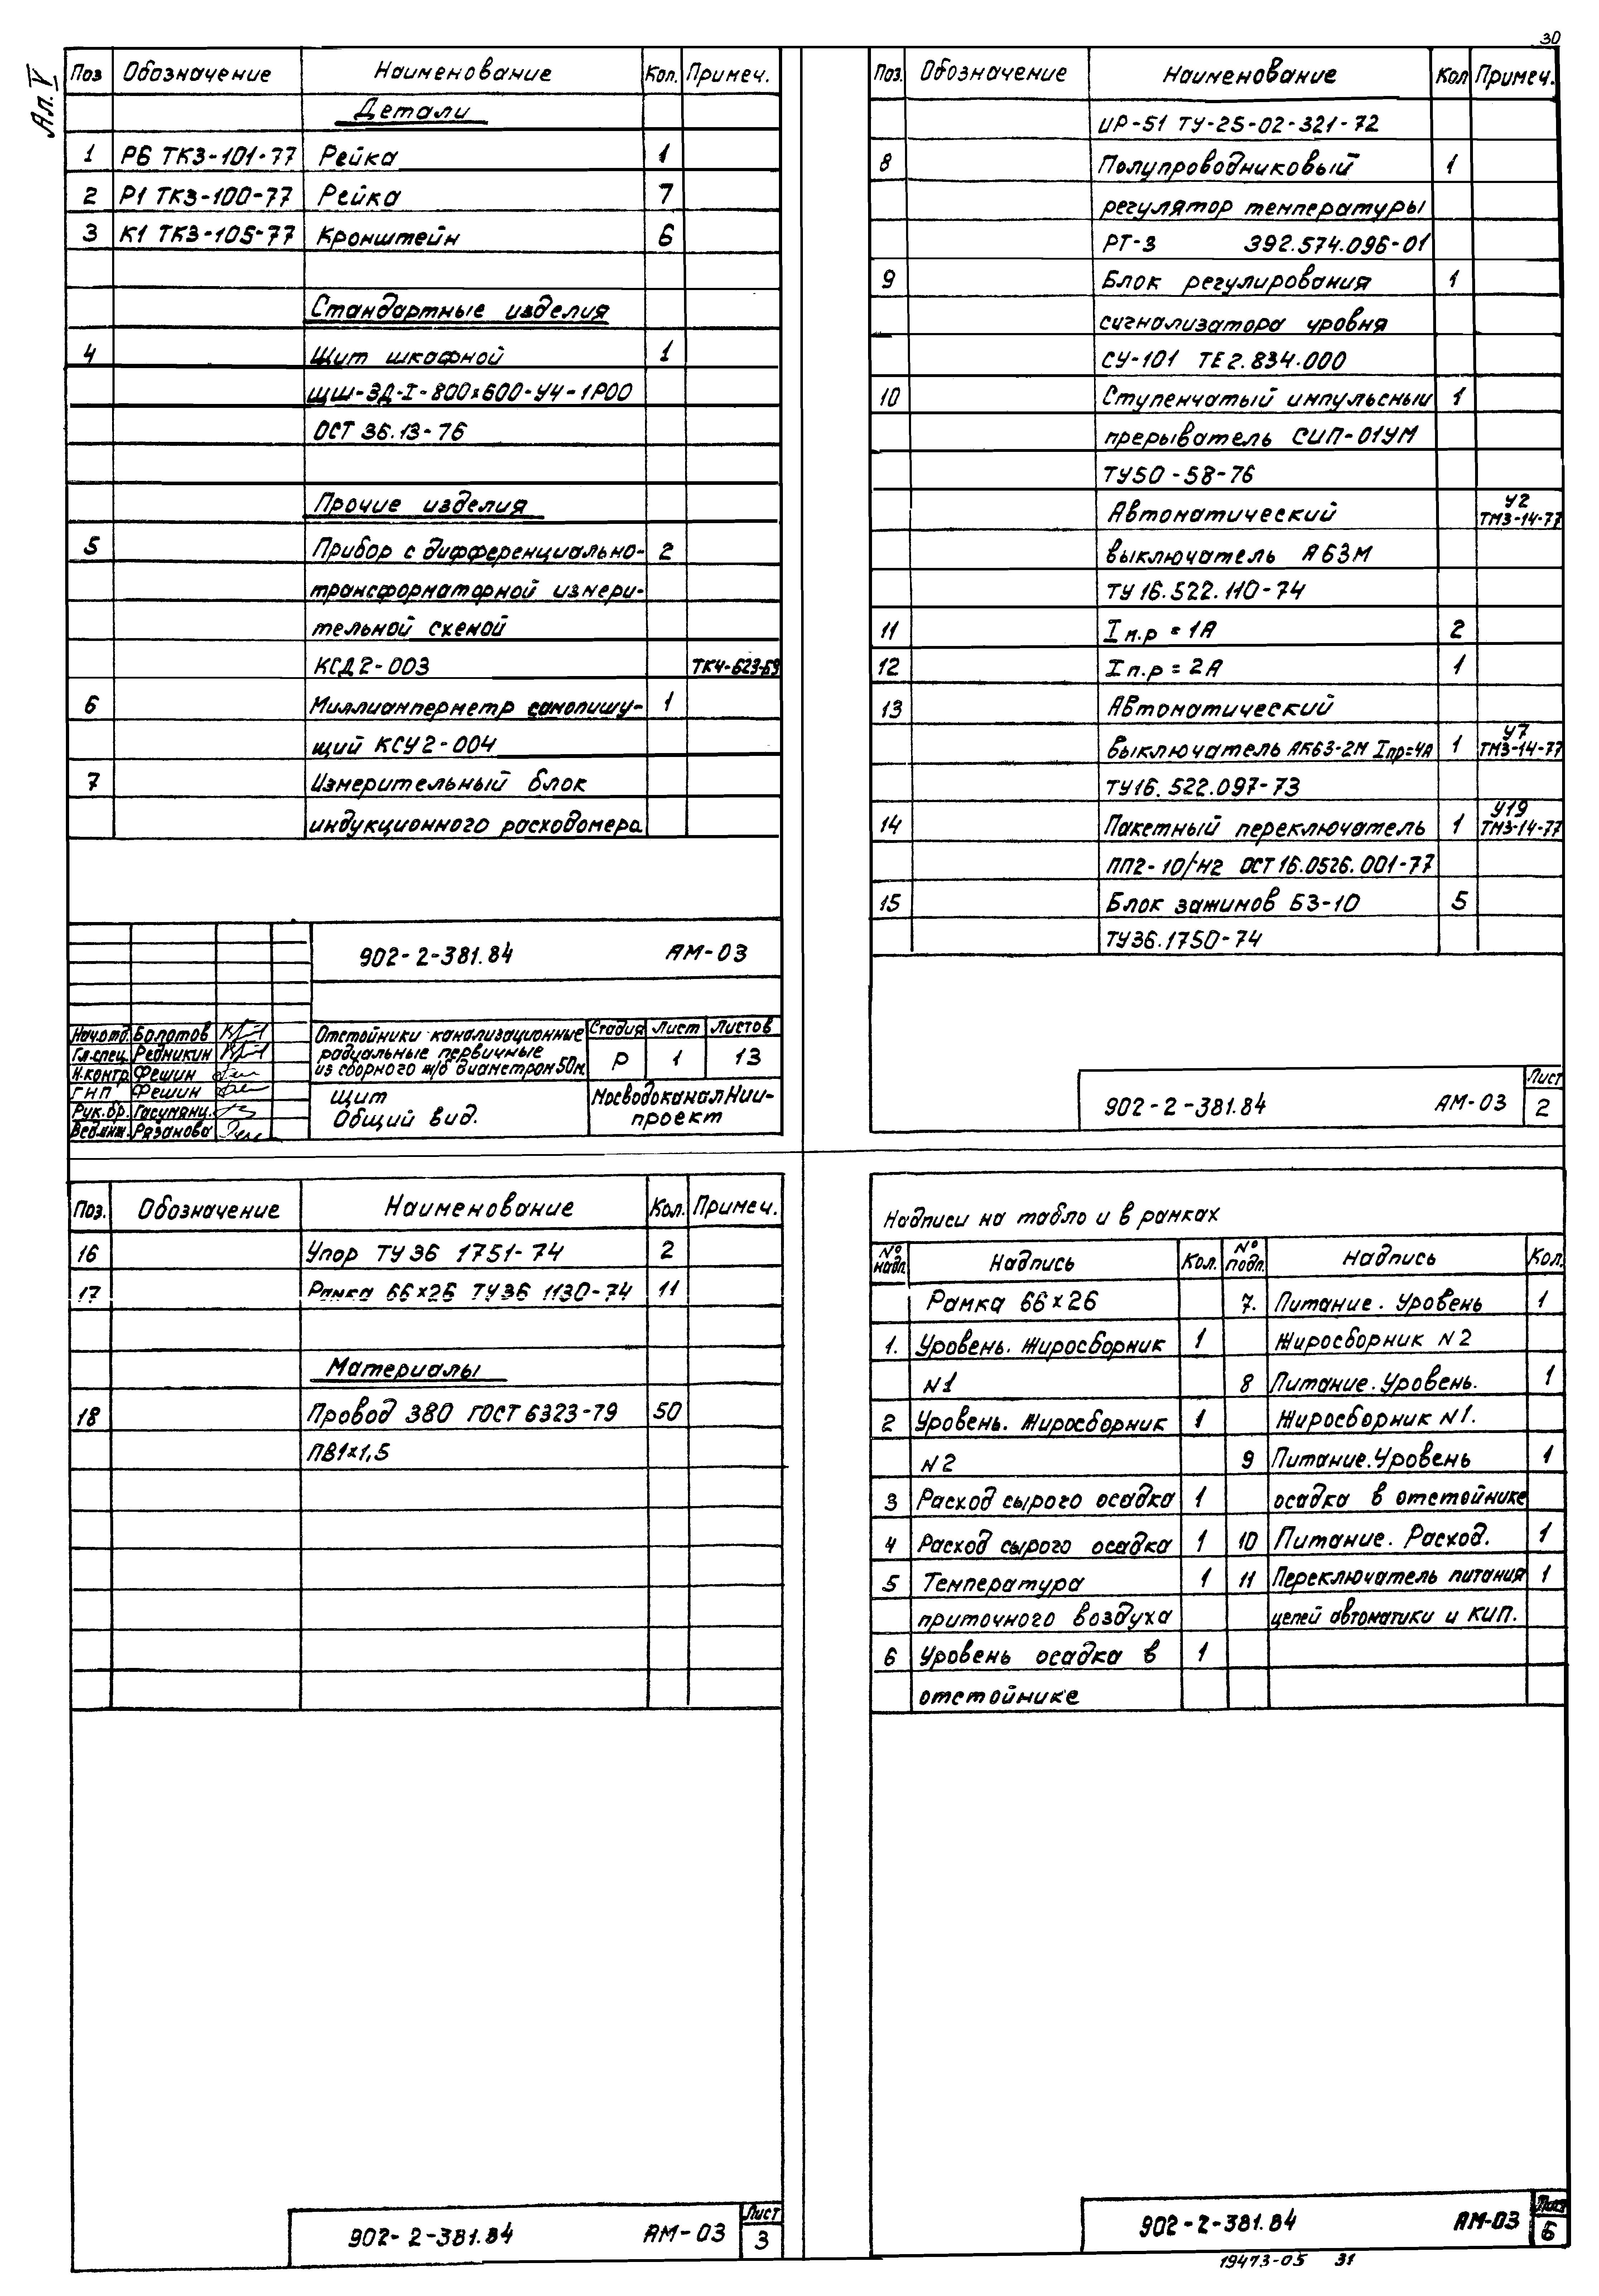 30
Ал. V
Поз Обозначение Наименование Кол. Примеч.
Детали
1 Р6 ТК3-101-77 Рейка 1
2 Р1 ТК3-100-77 Рейка 7
3 К1 ТК3-105-77 Кронштейн 6
Стандартные изделия
4 Щит шкафной 1
ЩШ-ЗД-I-800x600-У4-1Р00
ОСТ 36.13-76
Прочие изделия
5 Прибор с дифференциально- 2
трансформаторной измери-
тельной схемой
КСД2-003 ТК4-623-69
6 Миллиамперметр самопишу- 1
щий КСУ2-004
7 Измерительный блок
индукционного расходомера
902-2-381.84 АМ-03
Нач.отд. Болотов
Гл.спец. Редникин
Н.контр. Фешин
ГИП Фешин
Рук.бр. Гасумянц
Вед.инж. Рязанова
Отстойники канализационные
радиальные первичные
из сборного ж/б диаметром 50м.
Стадия Лист Листов
Р 1 13
Щит
Общий вид.
МосводоканалНии-
проект
Поз. Обозначение Наименование Кол Примеч.
ИР-51 ТУ-25-02-321-72
8 Полупроводниковый 1
регулятор температуры
РТ-3 392.574.096-01
9 Блок регулирования 1
сигнализатора уровня
СУ-101 ТЕ2.834.000
10 Ступенчатый импульсный 1
прерыватель СИП-01УМ
ТУ50-58-76
Автоматический У2 ТМ3-14-77
выключатель А63М
ТУ16.522.110-74
11 Iн.р = 1А 2
12 Iп.р = 2А 1
13 Автоматический
выключатель АК63-2М Iпр=4А 1 У7 ТМ3-14-77
ТУ16.522.097-73
14 Пакетный переключатель 1 У19 ТМ3-14-77
ПП2-10/Н2 ОСТ 16.0526.001-77
15 Блок зажимов БЗ-10 5
ТУ36.1750-74
902-2-381.84 АМ-03 Лист 2
Поз. Обозначение Наименование Кол. Примеч.
16 Упор ТУ36 1751-74 2
17 Рамка 66x26 ТУ36 1130-74 11
Материалы
18 Провод 380 ГОСТ 6323-79 50
ПВ1x1,5
902-2-381.84 АМ-03 Лист 3
Надписи на табло и в рамках
№ надп. Надпись Кол. № подп. Надпись Кол.
Рамка 66x26 7. Питание. Уровень 1
1. Уровень. Жиросборник 1 Жиросборник N2
N1 8 Питание. Уровень. 1
2 Уровень. Жиросборник 1 Жиросборник N1.
N2 9 Питание. Уровень 1
3 Расход сырого осадка 1 осадка в отстойнике
4 Расход сырого осадка 1 10 Питание. Расход. 1
5 Температура 1 11 Переключатель питания 1
приточного воздуха цепей автоматики и КИП.
6 Уровень осадка в 1
отстойнике
902-2-381.84 АМ-03 Лист
19473-05 31